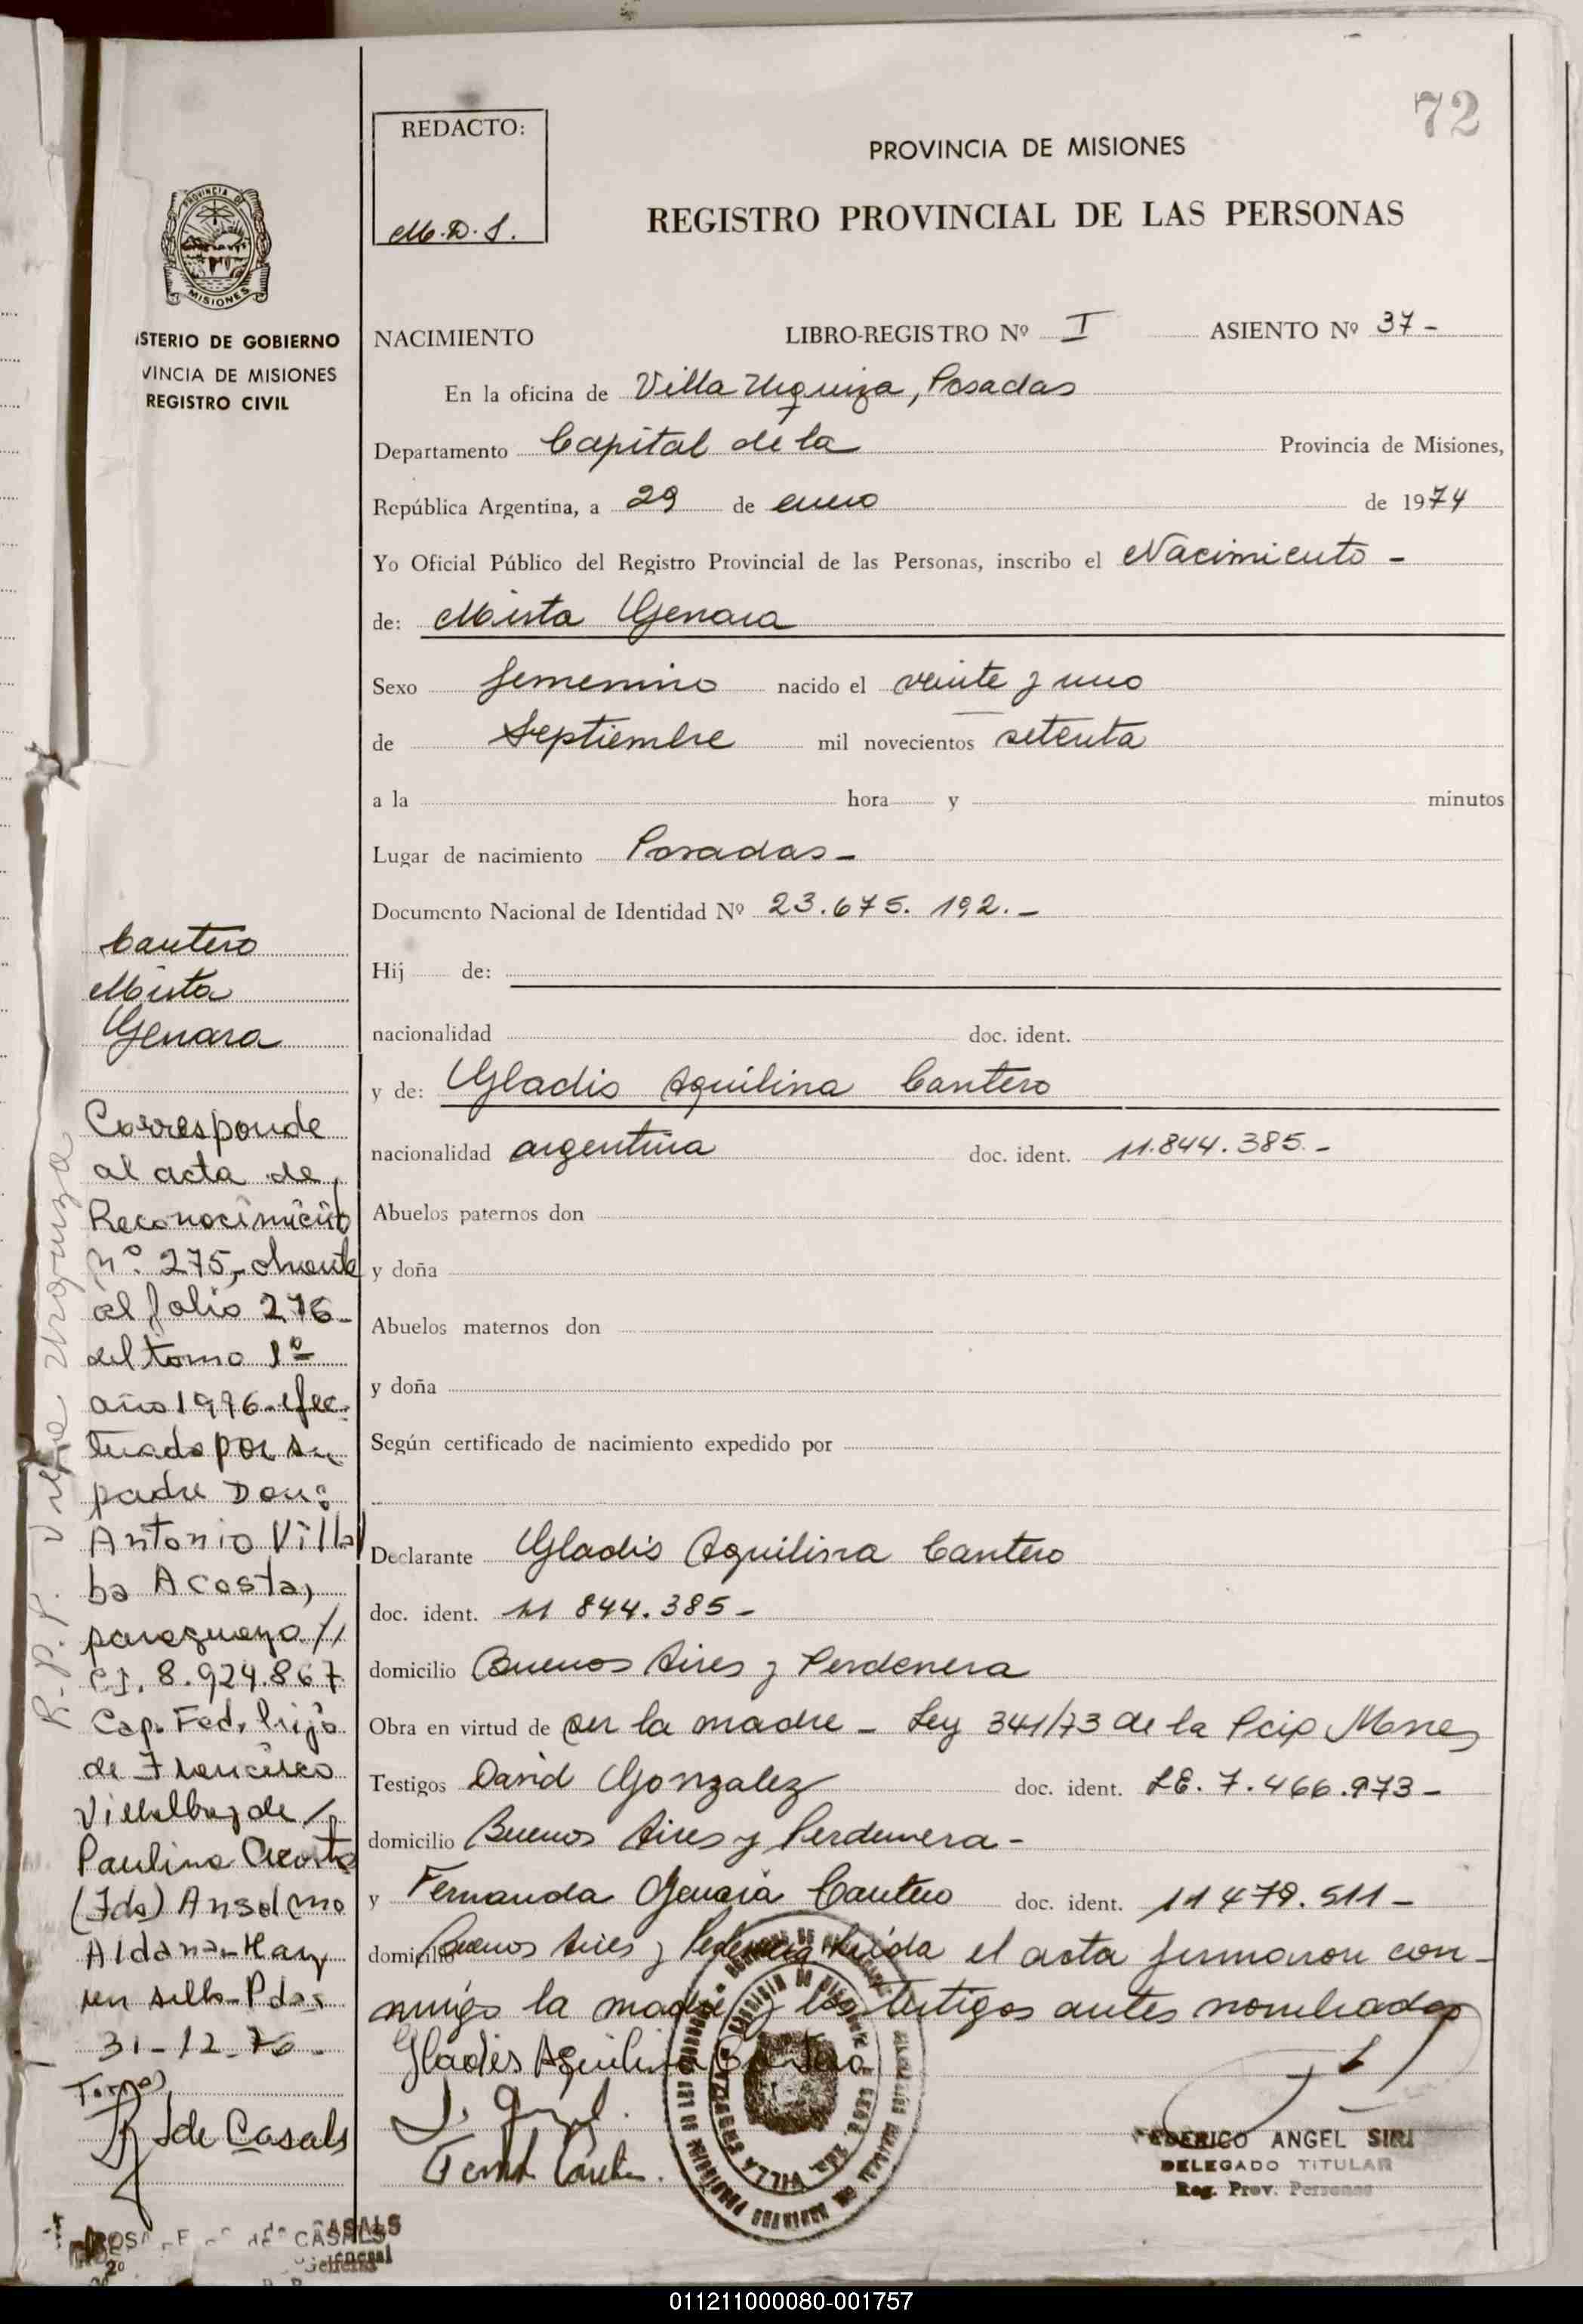 72
REDACTO:
M.D.S.
PROVINCIA DE MISIONES
REGISTRO PROVINCIAL DE LAS PERSONAS
PROVINCIA DE
MISIONES
ISTERIO DE GOBIERNO
VINCIA DE MISIONES
REGISTRO CIVIL
NACIMIENTO LIBRO-REGISTRO Nº I ASIENTO Nº 37-
En la oficina de Villa Urquiza, Posadas
Departamento Capital de la Provincia de Misiones,
República Argentina, a 29 de enero de 1974
Yo Oficial Público del Registro Provincial de las Personas, inscribo el Nacimiento -
de: Mirta Genara
Sexo femenino nacido el veinte y uno
de Septiembre mil novecientos setenta
a la hora y minutos
Lugar de nacimiento Posadas -
Documento Nacional de Identidad Nº 23.675.192.-
Hij de:
nacionalidad doc. ident.
y de: Gladis Aquilina Cantero
nacionalidad argentina doc. ident. 11.844.385.-
Abuelos paternos don
y doña
Abuelos maternos don
y doña
Según certificado de nacimiento expedido por
Declarante Gladis Aquilina Cantero
doc. ident. 11 844.385-
domicilio Buenos Aires y Perdenera
Obra en virtud de ser la madre - Ley 341/73 de la Pcip Mnes
Testigos David Gonzalez doc. ident. LE. 7.466.973-
domicilio Buenos Aires y Perdenera -
y Fernanda Genara Cantero doc. ident. 11 479.511-
domicilio Buenos Aires y leida el acta firmaron con-
migo la madre y los testigos antes nombrados
Gladis Aquilina Cantero
FEDERICO ANGEL SIRI
DELEGADO TITULAR
Reg. Prov. Personas
Cantero
Mirta
Genara
Corresponde
al acta de
Reconocimiento
nº 275, obrante
al folio 276-
del tomo 1º
año 1976- efec-
tuado por su
padre Don:
Antonio Villal
ba Acosta,
paraguayo //
C.I. 8.924.867
Cap. Fed. hijo
de Francisco
Villalba y de /
Paulina Acosta
(Fdo) Anselmo
Aldana- Hay
un sello- Pdas
31-12-76-
R.P.P. Villa Urquiza
de Casals
CASALS
General
011211000080-001757